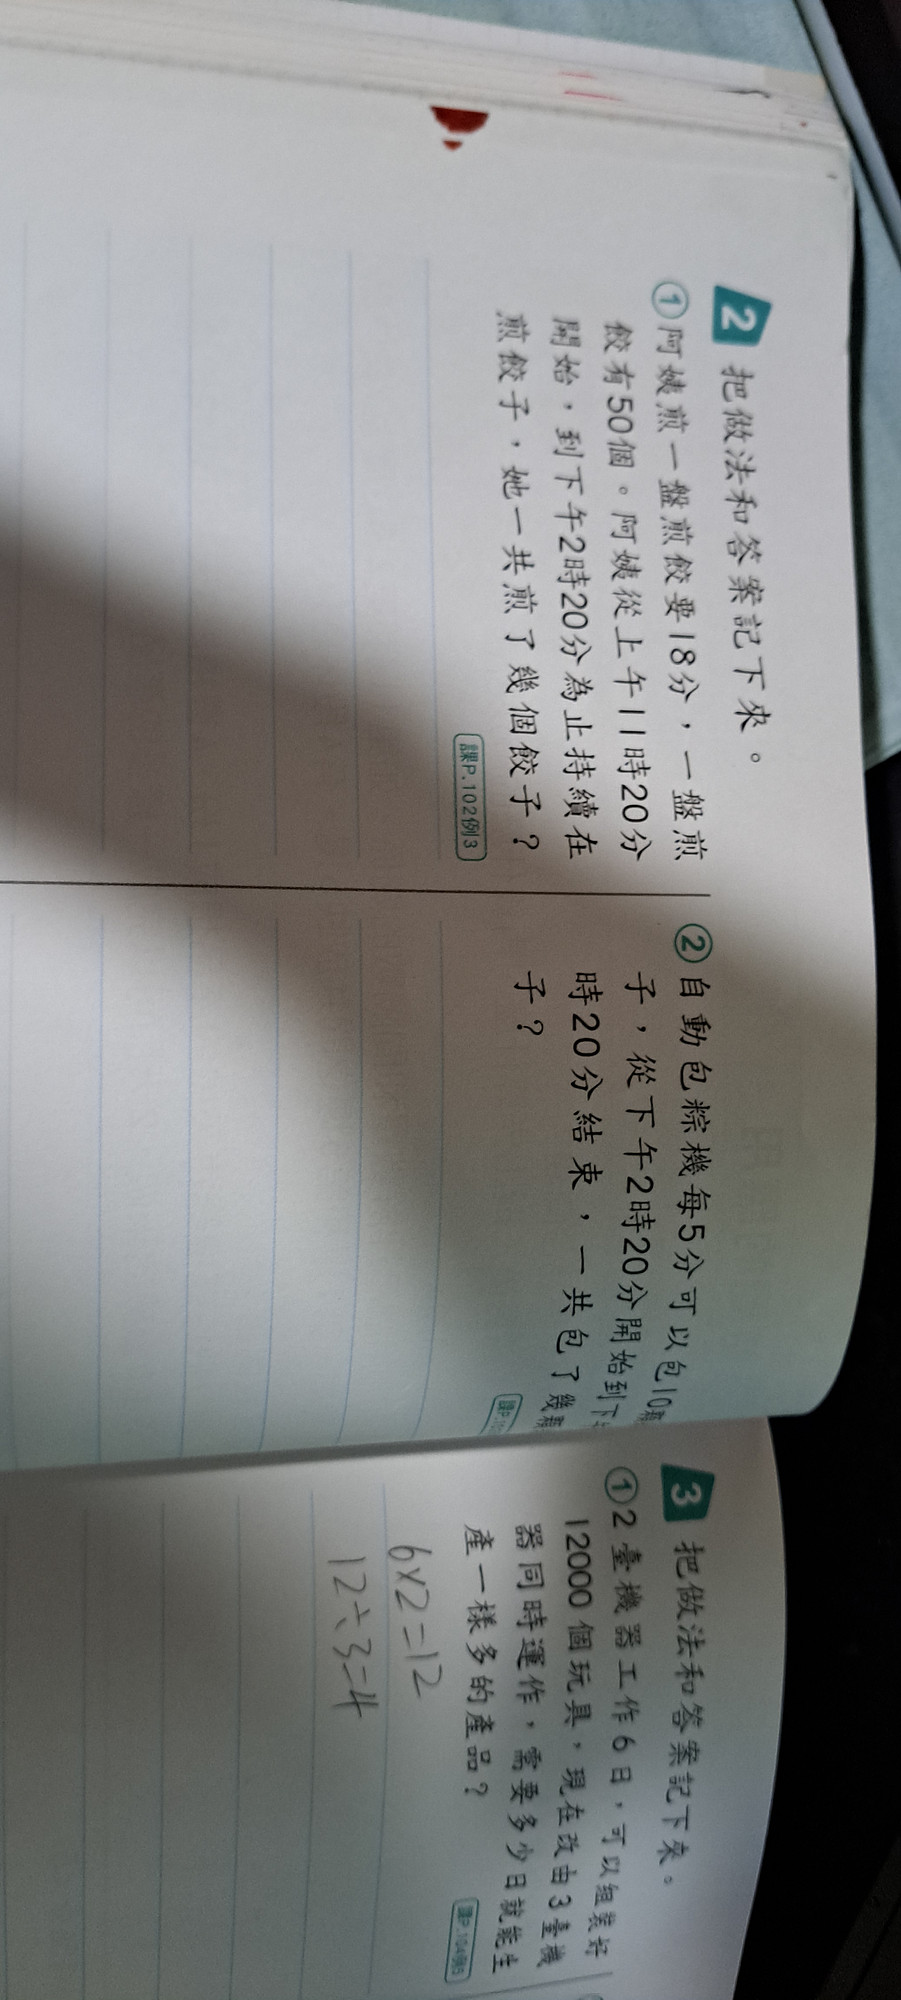 2 把做法和答案記下來。
①阿姨煎一盤煎餃要18分,一盤煎
餃有50個。阿姨從上午11時20分
開始,到下午2時20分為止持續在
煎餃子,她一共煎了幾個餃子?
課P.102例3
②自動包粽機每5分可以包10
子,從下午2時20分開始到下
時20分結束,一共包了幾
子?
3 把做法和答案記下來。
①2臺機器工作6日,可以組裝好
12000個玩具,現在改由3臺機
器同時運作,需要多少日就能生
產一樣多的產品?
課P.104例5
6×2=12
12÷3=4